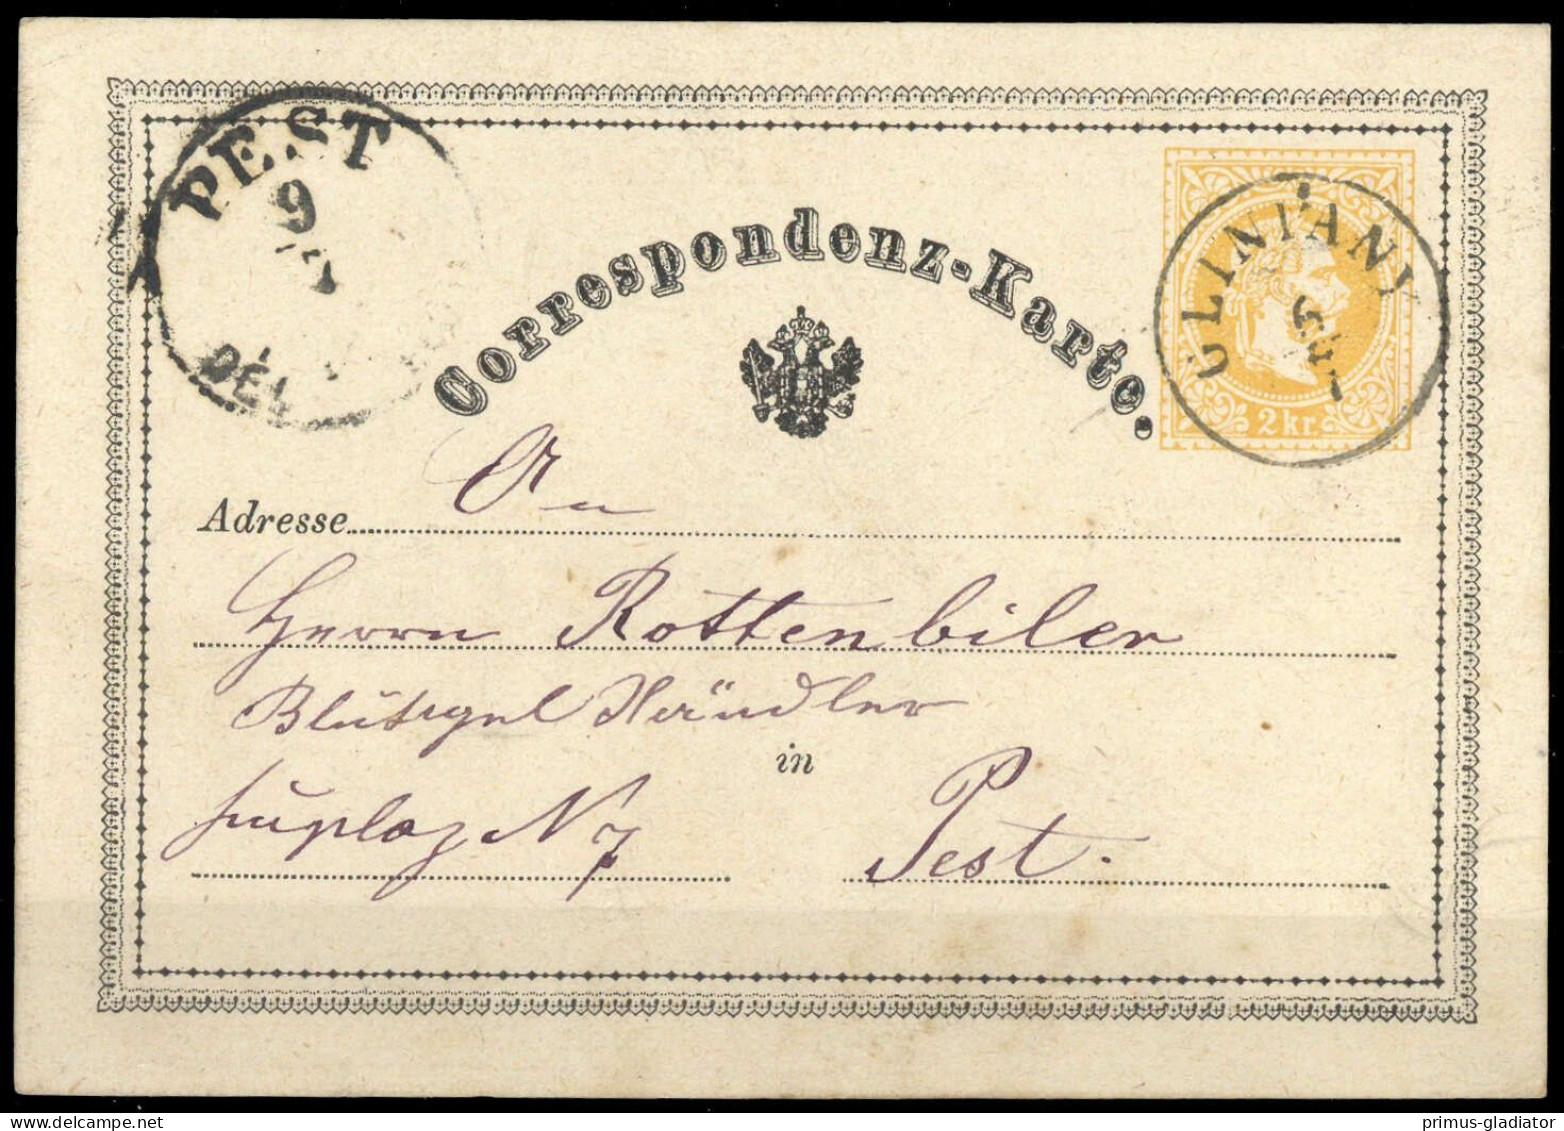 PEST
9
DÉL
Correspondenz-Karte.
ULINIANY
2 kr.
An
Adresse
Herrn Rottenbiler
Blutegel Händler
in
N 7
Pest.
www.delcampe.net
primus-gladiator